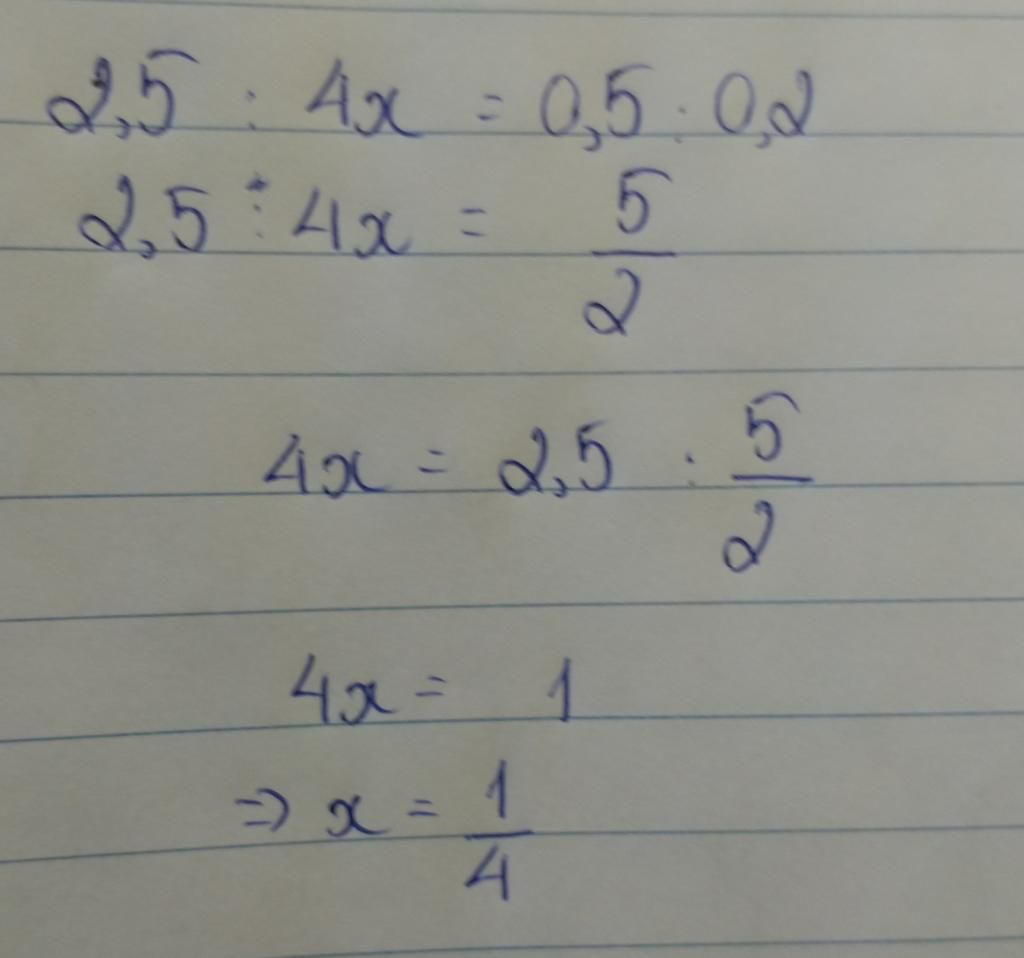 2,5 : 4x = 0,5 : 0,2
2,5 : 4x = 5/2
4x = 2,5 : 5/2
4x = 1
=> x = 1/4